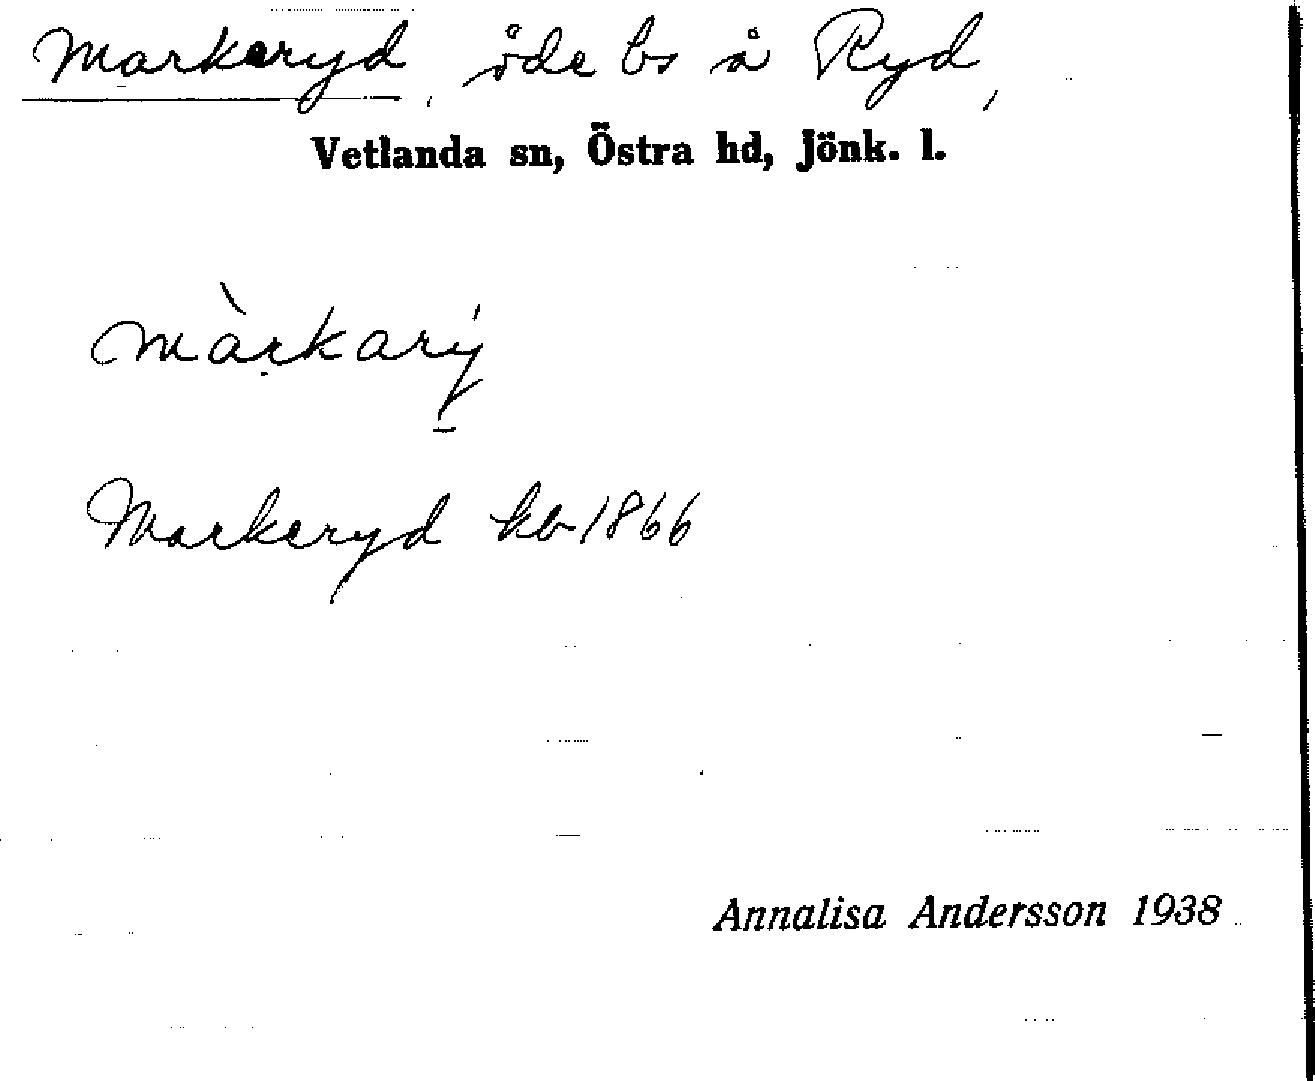 Markeryd, öde bs å Ryd,
Vetlanda sn, Östra hd, Jönk. l.
màrkarý
Markeryd kb 1866
Annalisa Andersson 1938